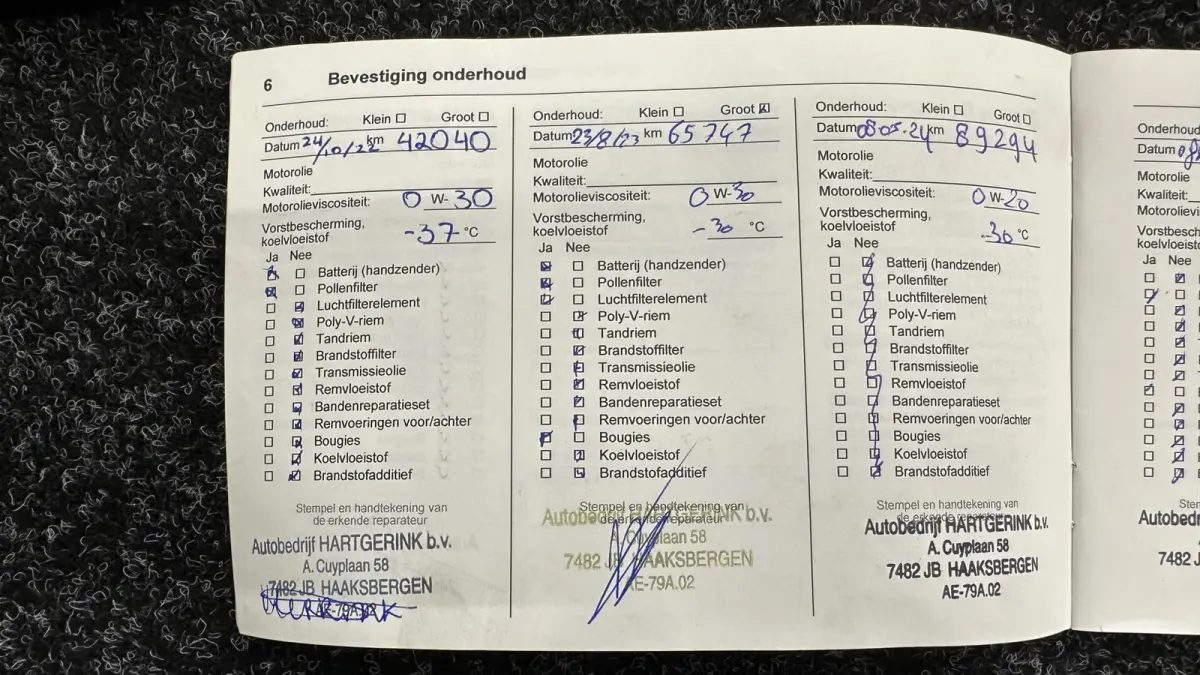 6 Bevestiging onderhoud
Onderhoud: Klein Groot
Datum 24/10/22 km 42040
Motorolie
Kwaliteit:
Motorolieviscositeit: 0 W- 30
Vorstbescherming,
koelvloeistof -37 °C
Ja Nee
Batterij (handzender)
Pollenfilter
Luchtfilterelement
Poly-V-riem
Tandriem
Brandstoffilter
Transmissieolie
Remvloeistof
Bandenreparatieset
Remvoeringen voor/achter
Bougies
Koelvloeistof
Brandstofadditief
Stempel en handtekening van
de erkende reparateur
Autobedrijf HARTGERINK b.v.
A. Cuyplaan 58
7482 JB HAAKSBERGEN
AE-79A.02
Onderhoud: Klein Groot
Datum 23/8/23 km 65747
Motorolie
Kwaliteit:
Motorolieviscositeit: 0 W- 30
Vorstbescherming,
koelvloeistof -30 °C
Ja Nee
Batterij (handzender)
Pollenfilter
Luchtfilterelement
Poly-V-riem
Tandriem
Brandstoffilter
Transmissieolie
Remvloeistof
Bandenreparatieset
Remvoeringen voor/achter
Bougies
Koelvloeistof
Brandstofadditief
Stempel en handtekening van
de erkende reparateur
Autobedrijf HARTGERINK b.v.
A. Cuyplaan 58
7482 JB HAAKSBERGEN
AE-79A.02
Onderhoud: Klein Groot
Datum 08-05-24 km 89294
Motorolie
Kwaliteit:
Motorolieviscositeit: 0 W- 20
Vorstbescherming,
koelvloeistof -30 °C
Ja Nee
Batterij (handzender)
Pollenfilter
Luchtfilterelement
Poly-V-riem
Tandriem
Brandstoffilter
Transmissieolie
Remvloeistof
Bandenreparatieset
Remvoeringen voor/achter
Bougies
Koelvloeistof
Brandstofadditief
Stempel en handtekening van
de erkende reparateur
Autobedrijf HARTGERINK b.v.
A. Cuyplaan 58
7482 JB HAAKSBERGEN
AE-79A.02
Onderhoud
Datum
Motorolie
Kwaliteit:
Motorolievi
Vorstbesch
koelvloeisto
Ja Nee
Ste
Autobed
7482 J